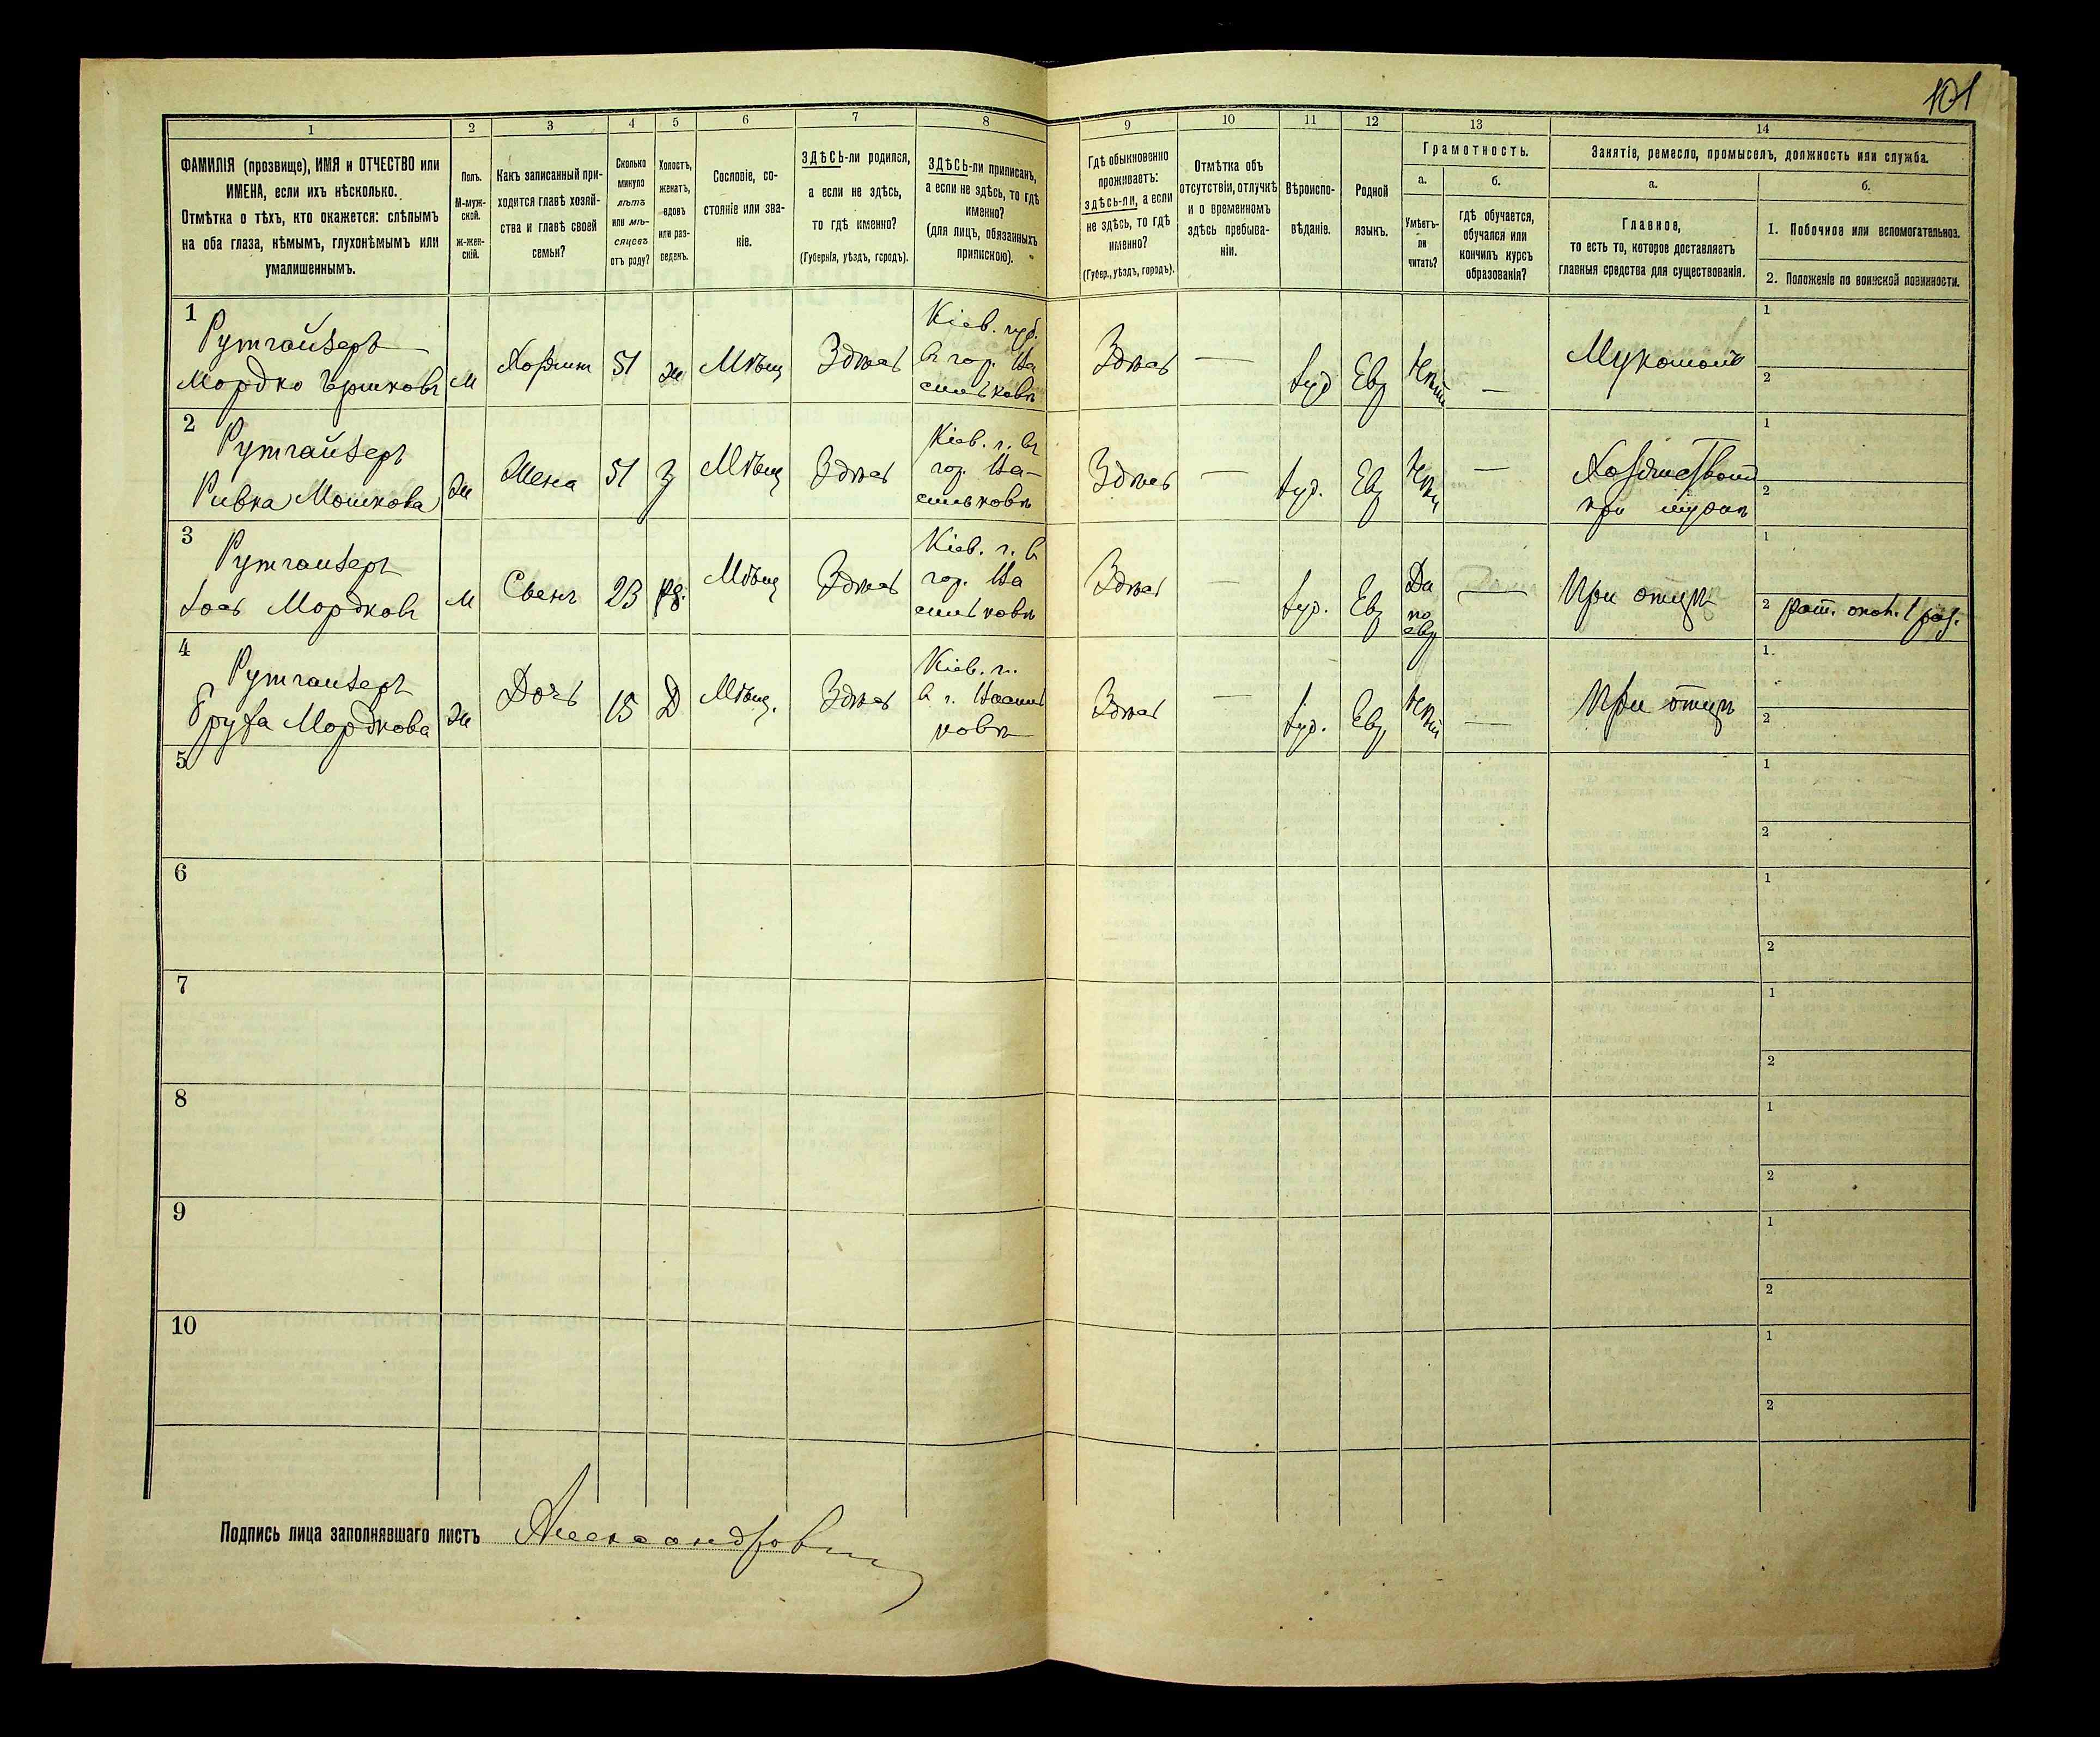 101
1 2 3 4 5 6 7 8 9 10 11 12 13 14
ФАМИЛІЯ (прозвище), ИМЯ и ОТЧЕСТВО или
ИМЕНА, если ихъ нѣсколько.
Отмѣтка о тѣхъ, кто окажется: слѣпымъ
на оба глаза, нѣмымъ, глухонѣмымъ или
умалишеннымъ.
Полъ.
М-муж-
ской.
Ж-жен-
скій.
Какъ записанный при-
ходится главѣ хозяй-
ства и главѣ своей
семьи?
Сколько
минуло
лѣтъ
или мѣ-
сяцевъ
отъ роду?
Холостъ,
женатъ,
вдовъ
или раз-
веденъ.
Сословіе, со-
стояніе или зва-
ніе.
ЗДѢСЬ-ли родился,
а если не здѣсь,
то гдѣ именно?
(Губернія, уѣздъ, городъ).
ЗДѢСЬ-ли приписанъ,
а если не здѣсь, то гдѣ
именно?
(для лицъ, обязанныхъ
припискою).
Гдѣ обыкновенно
проживаетъ:
здѣсь-ли, а если
не здѣсь, то гдѣ
именно?
(Губер., уѣздъ, городъ).
Отмѣтка объ
отсутствіи, отлучкѣ
и о временномъ
здѣсь пребыва-
ніи.
Вѣроиспо-
вѣданіе.
Родной
языкъ.
Грамотность.
а.
Умѣетъ-
ли
читать?
б.
гдѣ обучается,
обучался или
кончилъ курсъ
образованія?
Занятіе, ремесло, промыселъ, должность или служба.
а.
Главное,
то есть то, которое доставляетъ
главныя средства для существованія.
б.
1. Побочное или вспомогательное.
2. Положеніе по воинской повинности.
1
Рутгайзеръ
Мордко Гершковъ
М
Хозяинъ
51
ж
Мѣщ
Здѣсь
Кіев. губ.
въ гор. Ва
сильковѣ
Здѣсь
—
Іуд
Евр
Нѣтъ
—
Мукомолъ
1
2
2
Рутгайзеръ
Ривка Мошкова
Ж
Жена
51
З
Мѣщ
Здѣсь
Кіев. г. въ
гор. Ва-
сильковѣ
Здѣсь
—
Іуд.
Евр
Нѣтъ
—
при мужѣ
1
2
3
Рутгайзеръ
Іось Мордковъ
М
Сынъ
23
Мѣщ
Здѣсь
Кіев. г. въ
гор. Ва
сильковѣ
Здѣсь
—
Іуд.
Евр
Да
по
евр
—
При отцѣ
1
2 рат. опол. 1 раз.
4
Рутгайзеръ
Мордкова
Ж
Дочь
15
Д
Мѣщ.
Здѣсь
Кіев. г.
въ г. Василь
ковѣ
Здѣсь
—
Іуд.
Евр
Нѣтъ
—
При отцѣ
1.
2
5
1
2
6
1
2
7
1
2
8
1
2
9
1
2
10
1
2
Подпись лица заполнявшаго листъ